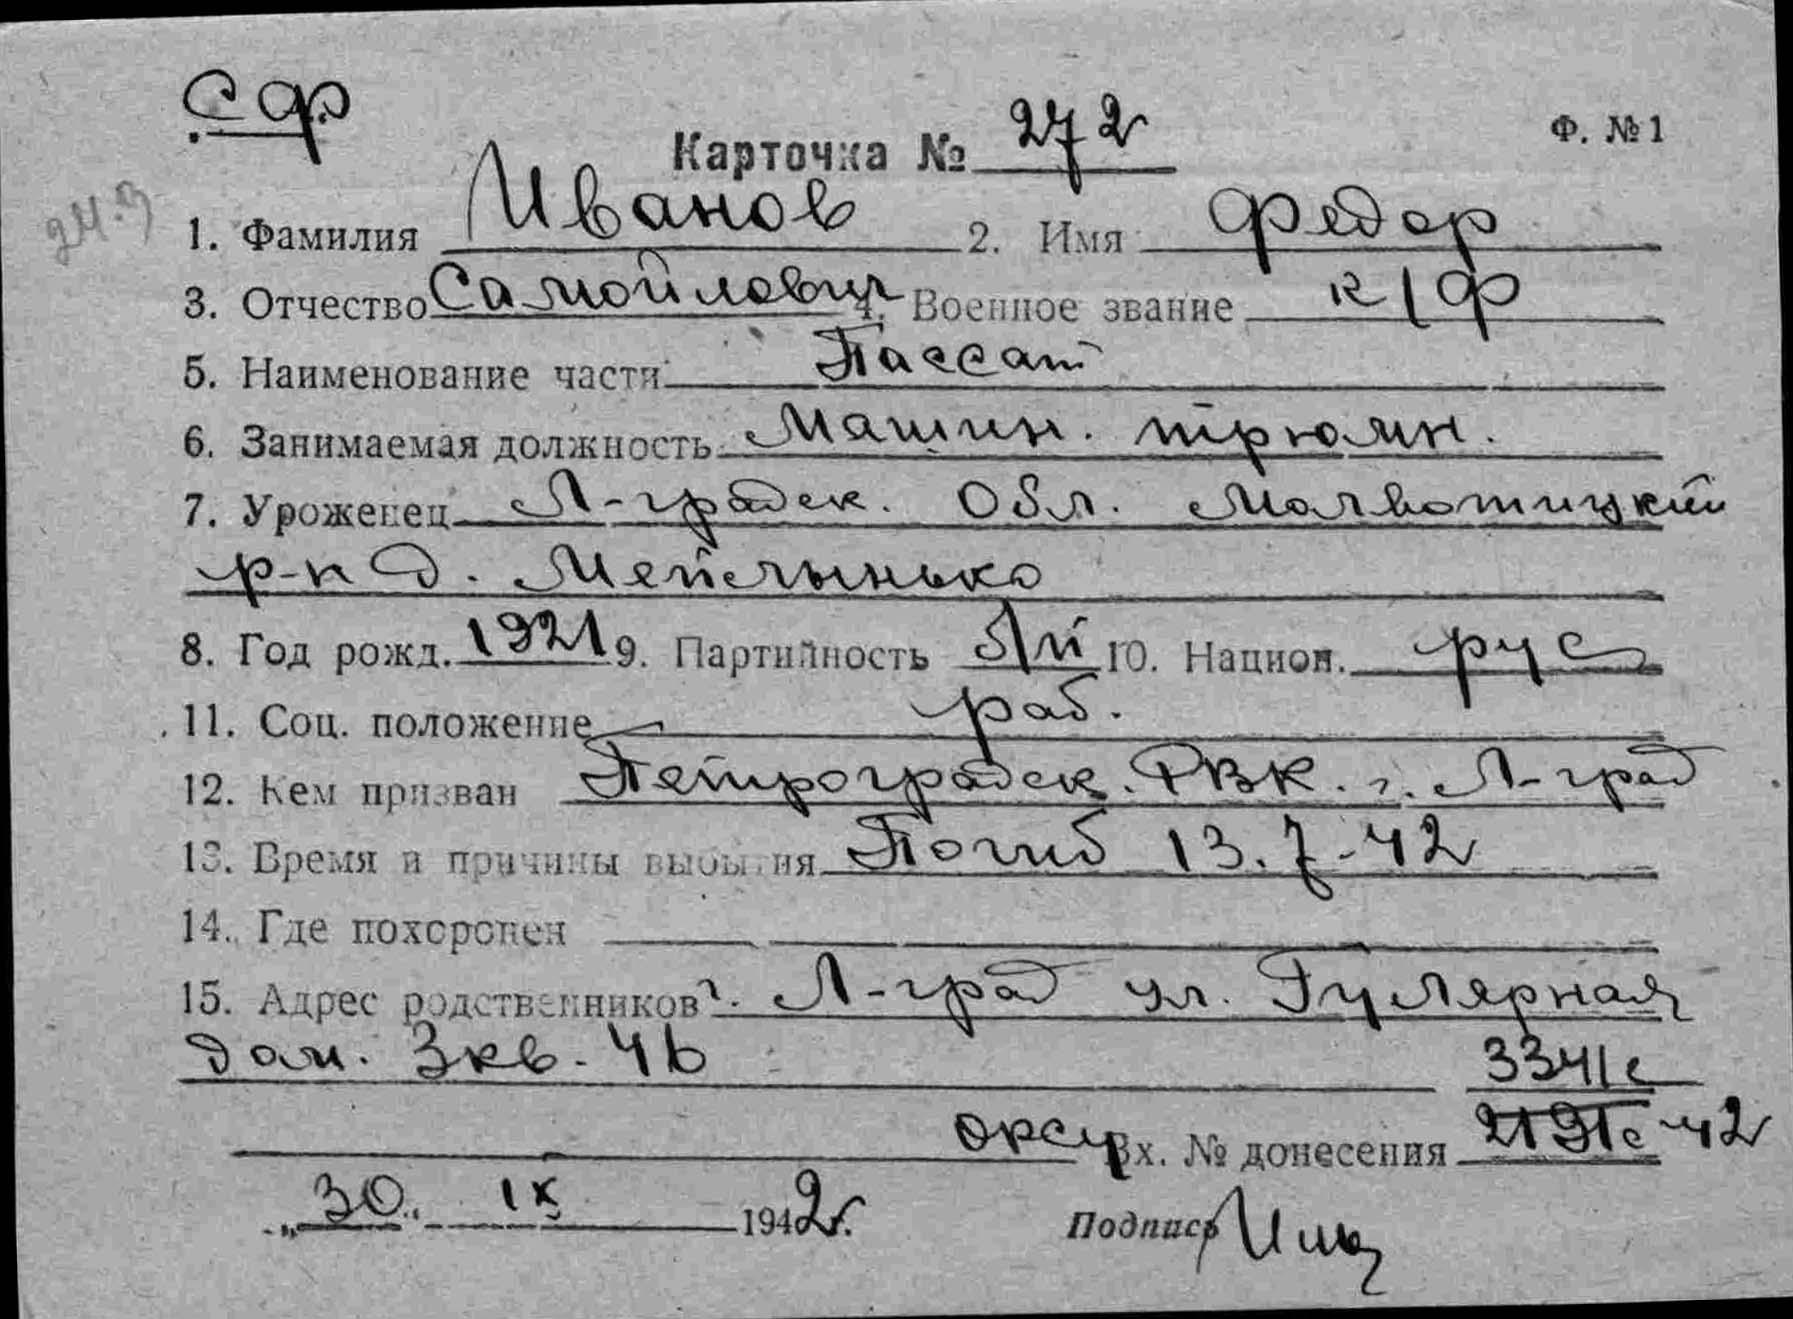 СФ
Карточка № 272
Ф. №1
1. Фамилия Иванов 2. Имя Федор
3. Отчество Самойлович 4. Военное звание к/ф
5. Наименование части Пассат
6. Занимаемая должность Машин. трюмн.
7. Уроженец Л-градск. Обл. Молвотицкий
р-н д.
8. Год рожд. 1921 9. Партийность б/п 10. Национ. рус
11. Соц. положение раб.
12. Кем призван Петроградск. РВК. г. Л-град
13. Время и причины выбытия Погиб 13.7-42
14. Где похоронен
15. Адрес родственников г. Л-град ул. Гулярная
дом. 3 кв. 46
3341с
Вх. № донесения 2191с-42
„30" IX 1942г.
Подпись